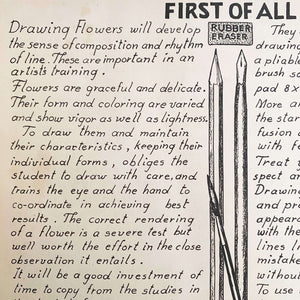 FIRST OF ALL
Drawing Flowers will develop
the sense of composition and rhythm
of line. These are important in an
artists training.
Flowers are graceful and delicate.
Their form and coloring are varied
and show vigor as well as lightness.
To draw them and maintain
their characteristics, keeping their
individual forms, obliges the
student to draw with care, and
trains the eye and the hand to
co-ordinate in achieving best
results. The correct rendering
of a flower is a severe test but
well worth the effort in the close
observation it entails.
It will be a good investment of
time to copy from the studies in
RUBBER
ERASER
They
drawing
a pliable
brush
pad 8x
More a
the star
fusion
with fe
Treat
spect a
Drawin
and pro
appear
with th
lines l
mistak
withou
To use